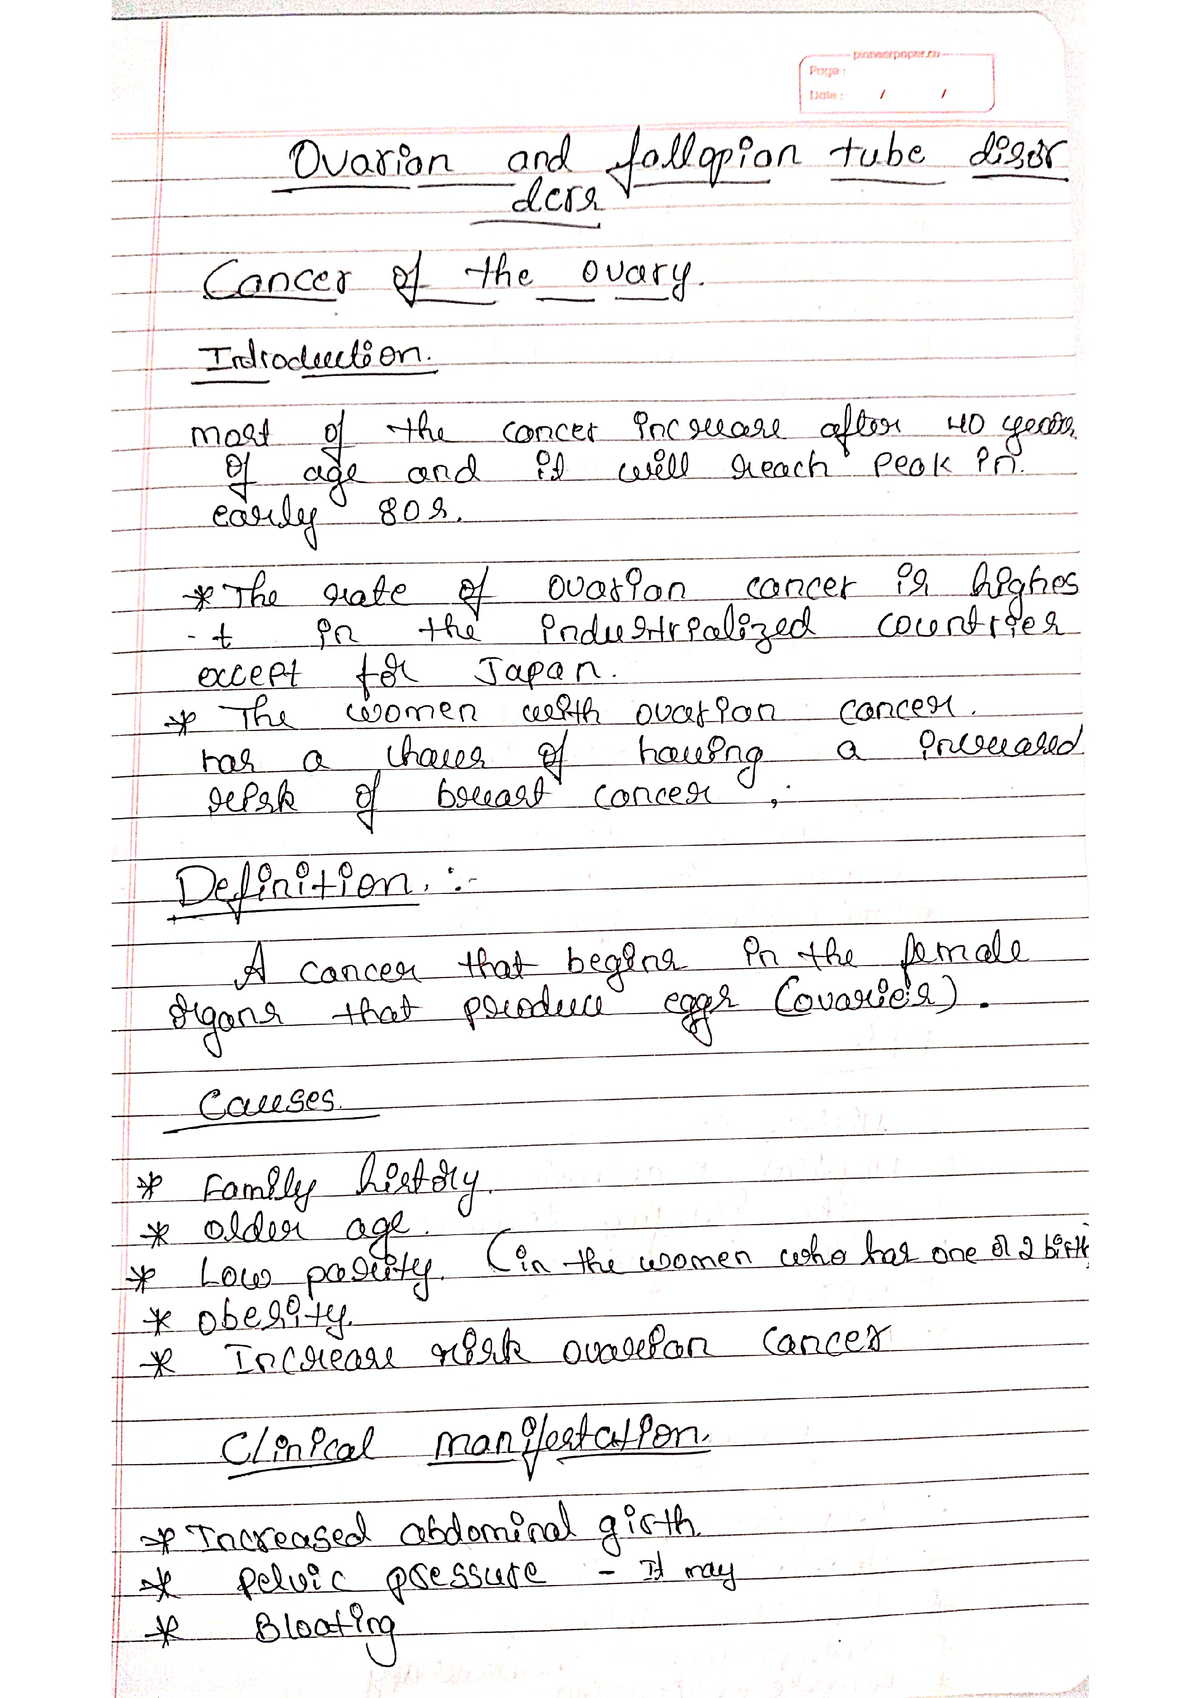 pioneerpaper.co
Page :
Date : / /
Ovarian and fallopian tube disor
ders
Cancer of the ovary.
Introduction.
most of the cancer increase after 40 years
of age and it will reach peak in
early 80s.
* The rate of ovarian cancer is highes
-t in the industrialized countries
except for Japan.
* The women with ovarian cancer.
has a chances of having a increased
risk of breast cancer ,
Definition. :-
A cancer that begins in the female
organs that produce eggs (ovaries).
Causes.
* Family history.
* older age.
* Low parity. (in the women who has one or 2 birth
* obesity.
* Increase risk ovarian cancer
Clinical manifestation.
* Increased abdominal girth
* Pelvic pressure - It may
* Bloating